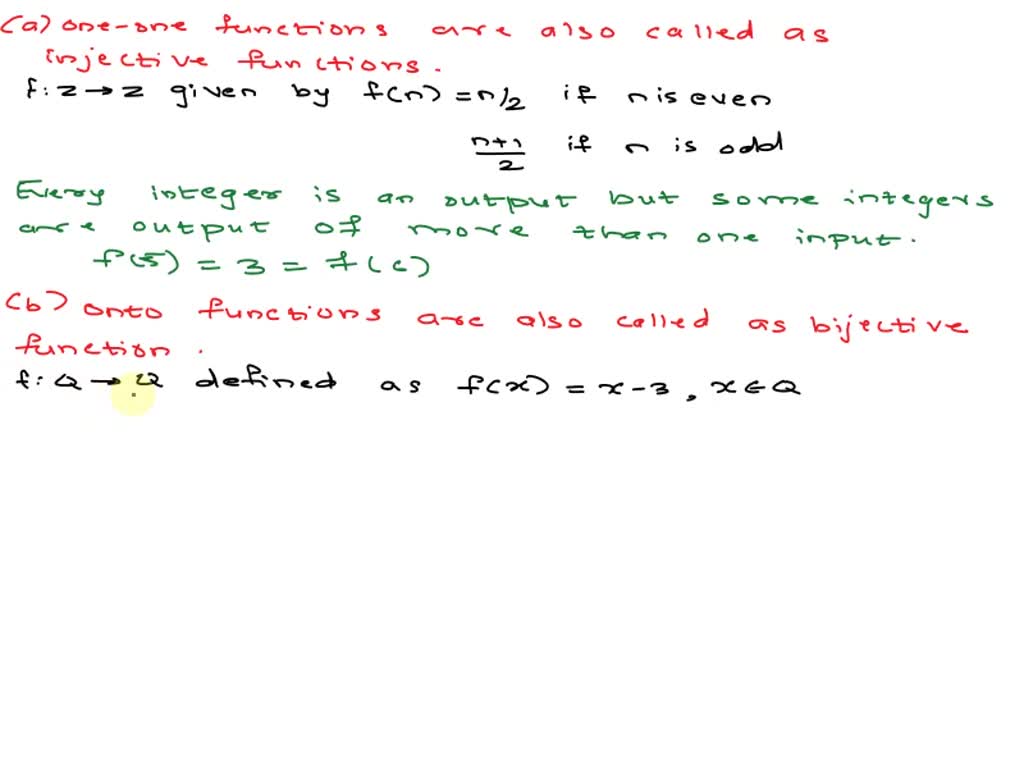 (a) one-one functions are also called as
injective functions.
f: Z → Z given by f(n) = n/2 if n is even
n+1/2 if n is odd
Every integer is an output but some integers
are output of more than one input.
f(5) = 3 = f(6)
(b) onto functions are also called as bijective
function.
f: Q → Q defined as f(x) = x-3, x ∈ Q